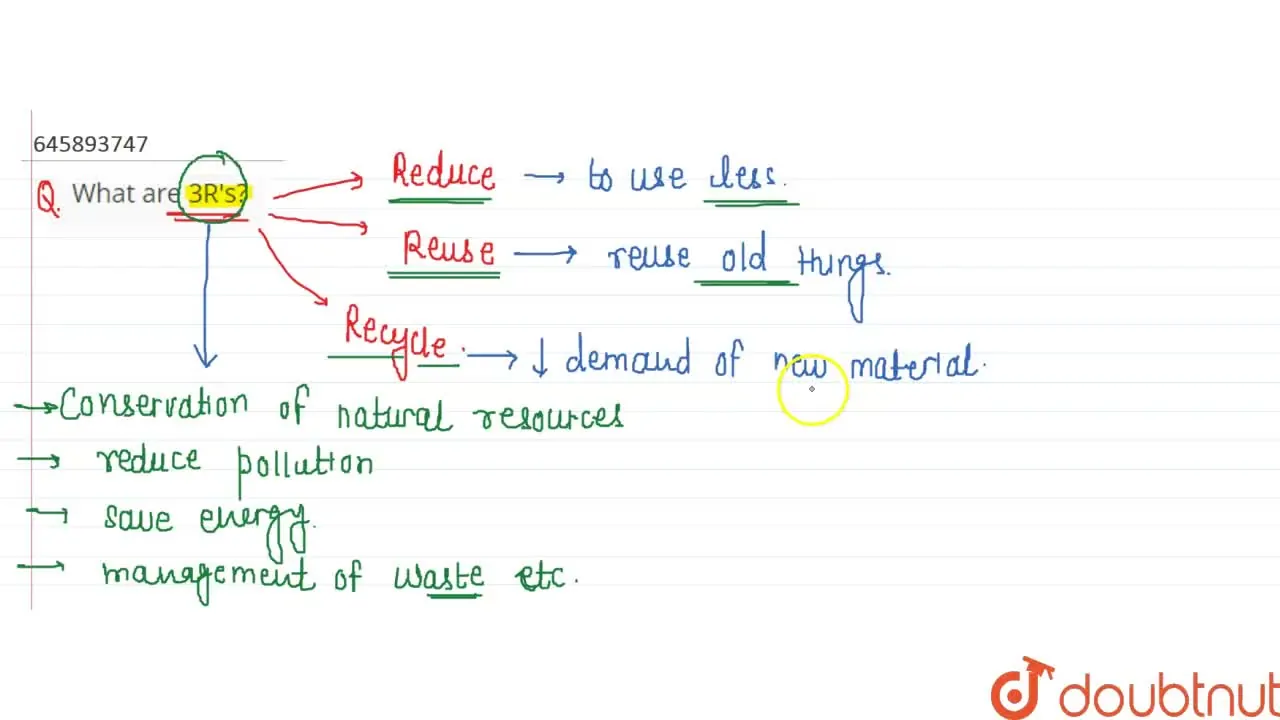 645893747
Q. What are 3R's?
Reduce → to use less.
Reuse → reuse old things.
Recycle. → ↓ demand of new material.
→ Conservation of natural resources
→ reduce pollution
→ save energy.
→ management of waste etc.
doubtnut